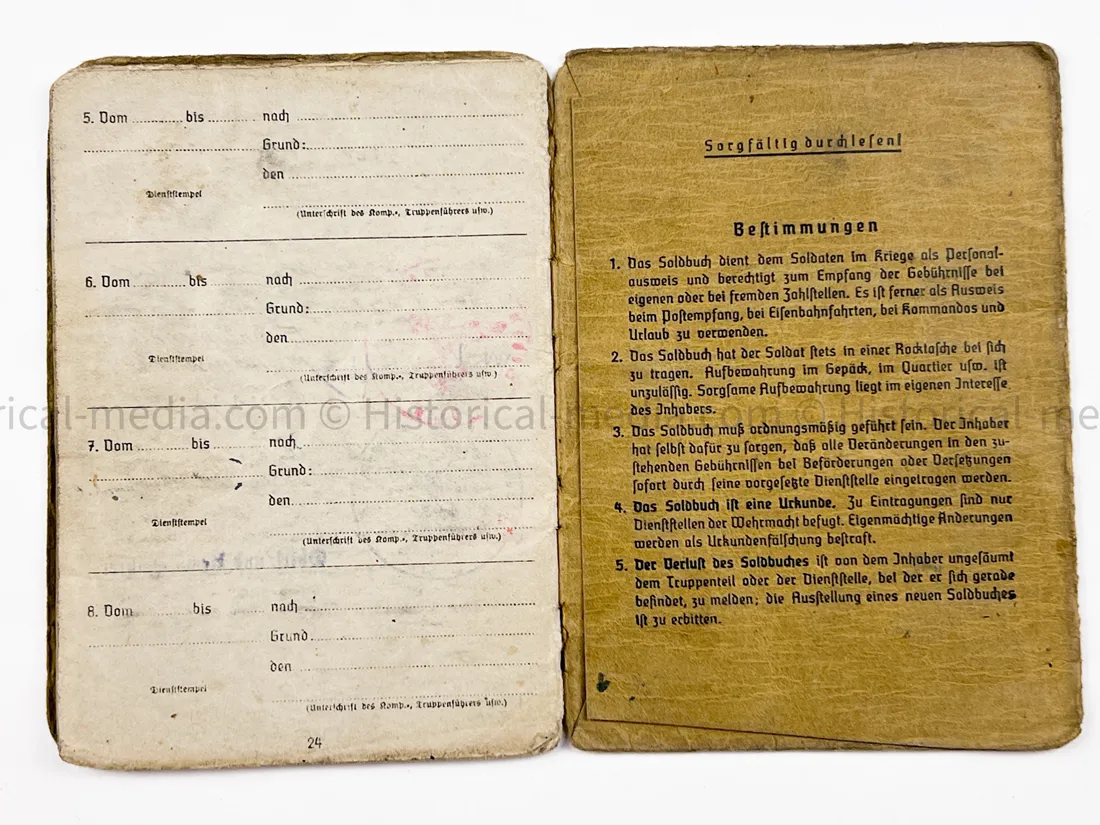 5. Vom ............ bis .......... nach
Grund:
den
Dienststempel
(Unterschrift des Komp.-, Truppenführers usw.)
6. Vom ............ bis nach
Grund:
den
Dienststempel
(Unterschrift des Komp.-, Truppenführers usw.)
7. Vom ............ bis nach
Grund:
den
Dienststempel
(Unterschrift des Komp.-, Truppenführers usw.)
8. Vom ............ bis nach
Grund:
den
Dienststempel
(Unterschrift des Komp.-, Truppenführers usw.)
24
Sorgfältig durchlesen!
Bestimmungen
1. Das Soldbuch dient dem Soldaten im Kriege als Personal-
ausweis und berechtigt zum Empfang der Gebührnisse bei
eigenen oder bei fremden Zahlstellen. Es ist ferner als Ausweis
beim Postempfang, bei Eisenbahnfahrten, bei Kommandos und
Urlaub zu verwenden.
2. Das Soldbuch hat der Soldat stets in einer Rocktasche bei sich
zu tragen. Aufbewahrung im Gepäck, im Quartier usw. ist
unzulässig. Sorgsame Aufbewahrung liegt im eigenen Interesse
des Inhabers.
3. Das Soldbuch muß ordnungsmäßig geführt sein. Der Inhaber
hat selbst dafür zu sorgen, daß alle Veränderungen in den zu-
stehenden Gebührnissen bei Beförderungen oder Versetzungen
sofort durch seine vorgesetzte Dienststelle eingetragen werden.
4. Das Soldbuch ist eine Urkunde. Zu Eintragungen sind nur
Dienststellen der Wehrmacht befugt. Eigenmächtige Änderungen
werden als Urkundenfälschung bestraft.
5. Der Verlust des Soldbuches ist von dem Inhaber ungesäumt
dem Truppenteil oder der Dienststelle, bei der er sich gerade
befindet, zu melden; die Ausstellung eines neuen Soldbuches
ist zu erbitten.
rical-media.com © Historical-media.com © Historical-me